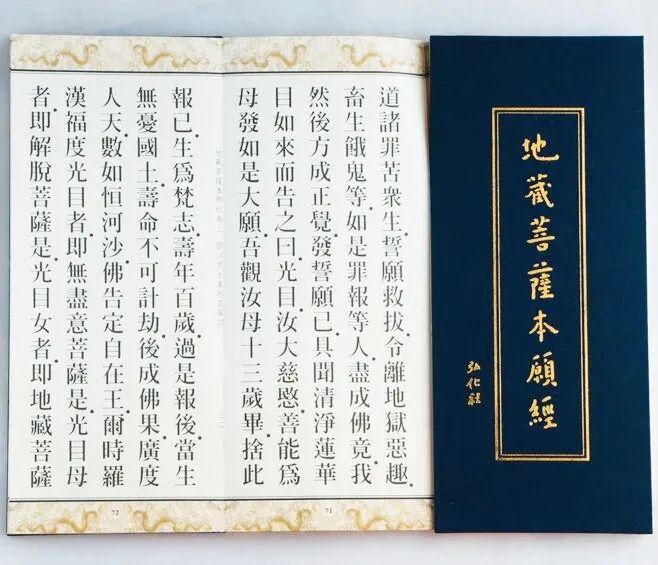 地藏菩薩本願經
弘化
道諸罪苦衆生。誓願救拔。令離地獄惡趣。
畜生餓鬼等。如是罪報等人。盡成佛竟。我
然後方成正覺。發誓願已。具聞清淨蓮華
目如來而告之曰。光目。汝大慈愍。善能爲
母發如是大願。吾觀汝母十三歲畢。捨此
71
報已。生爲梵志。壽年百歲。過是報後。當生
無憂國土。壽命不可計劫。後成佛果。廣度
人天。數如恒河沙。佛告定自在王。爾時羅
漢福度光目者。即無盡意菩薩是。光目母
者。即解脫菩薩是。光目女者。即地藏菩薩
72